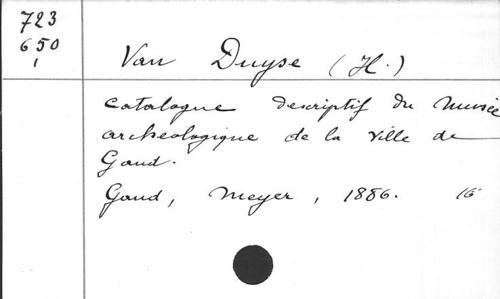 723
650
1
Van Duyse (H.)
Catalogue descriptif du Musée
archéologique de la Ville de
Gand.
Gand, Meyer, 1886. 16°